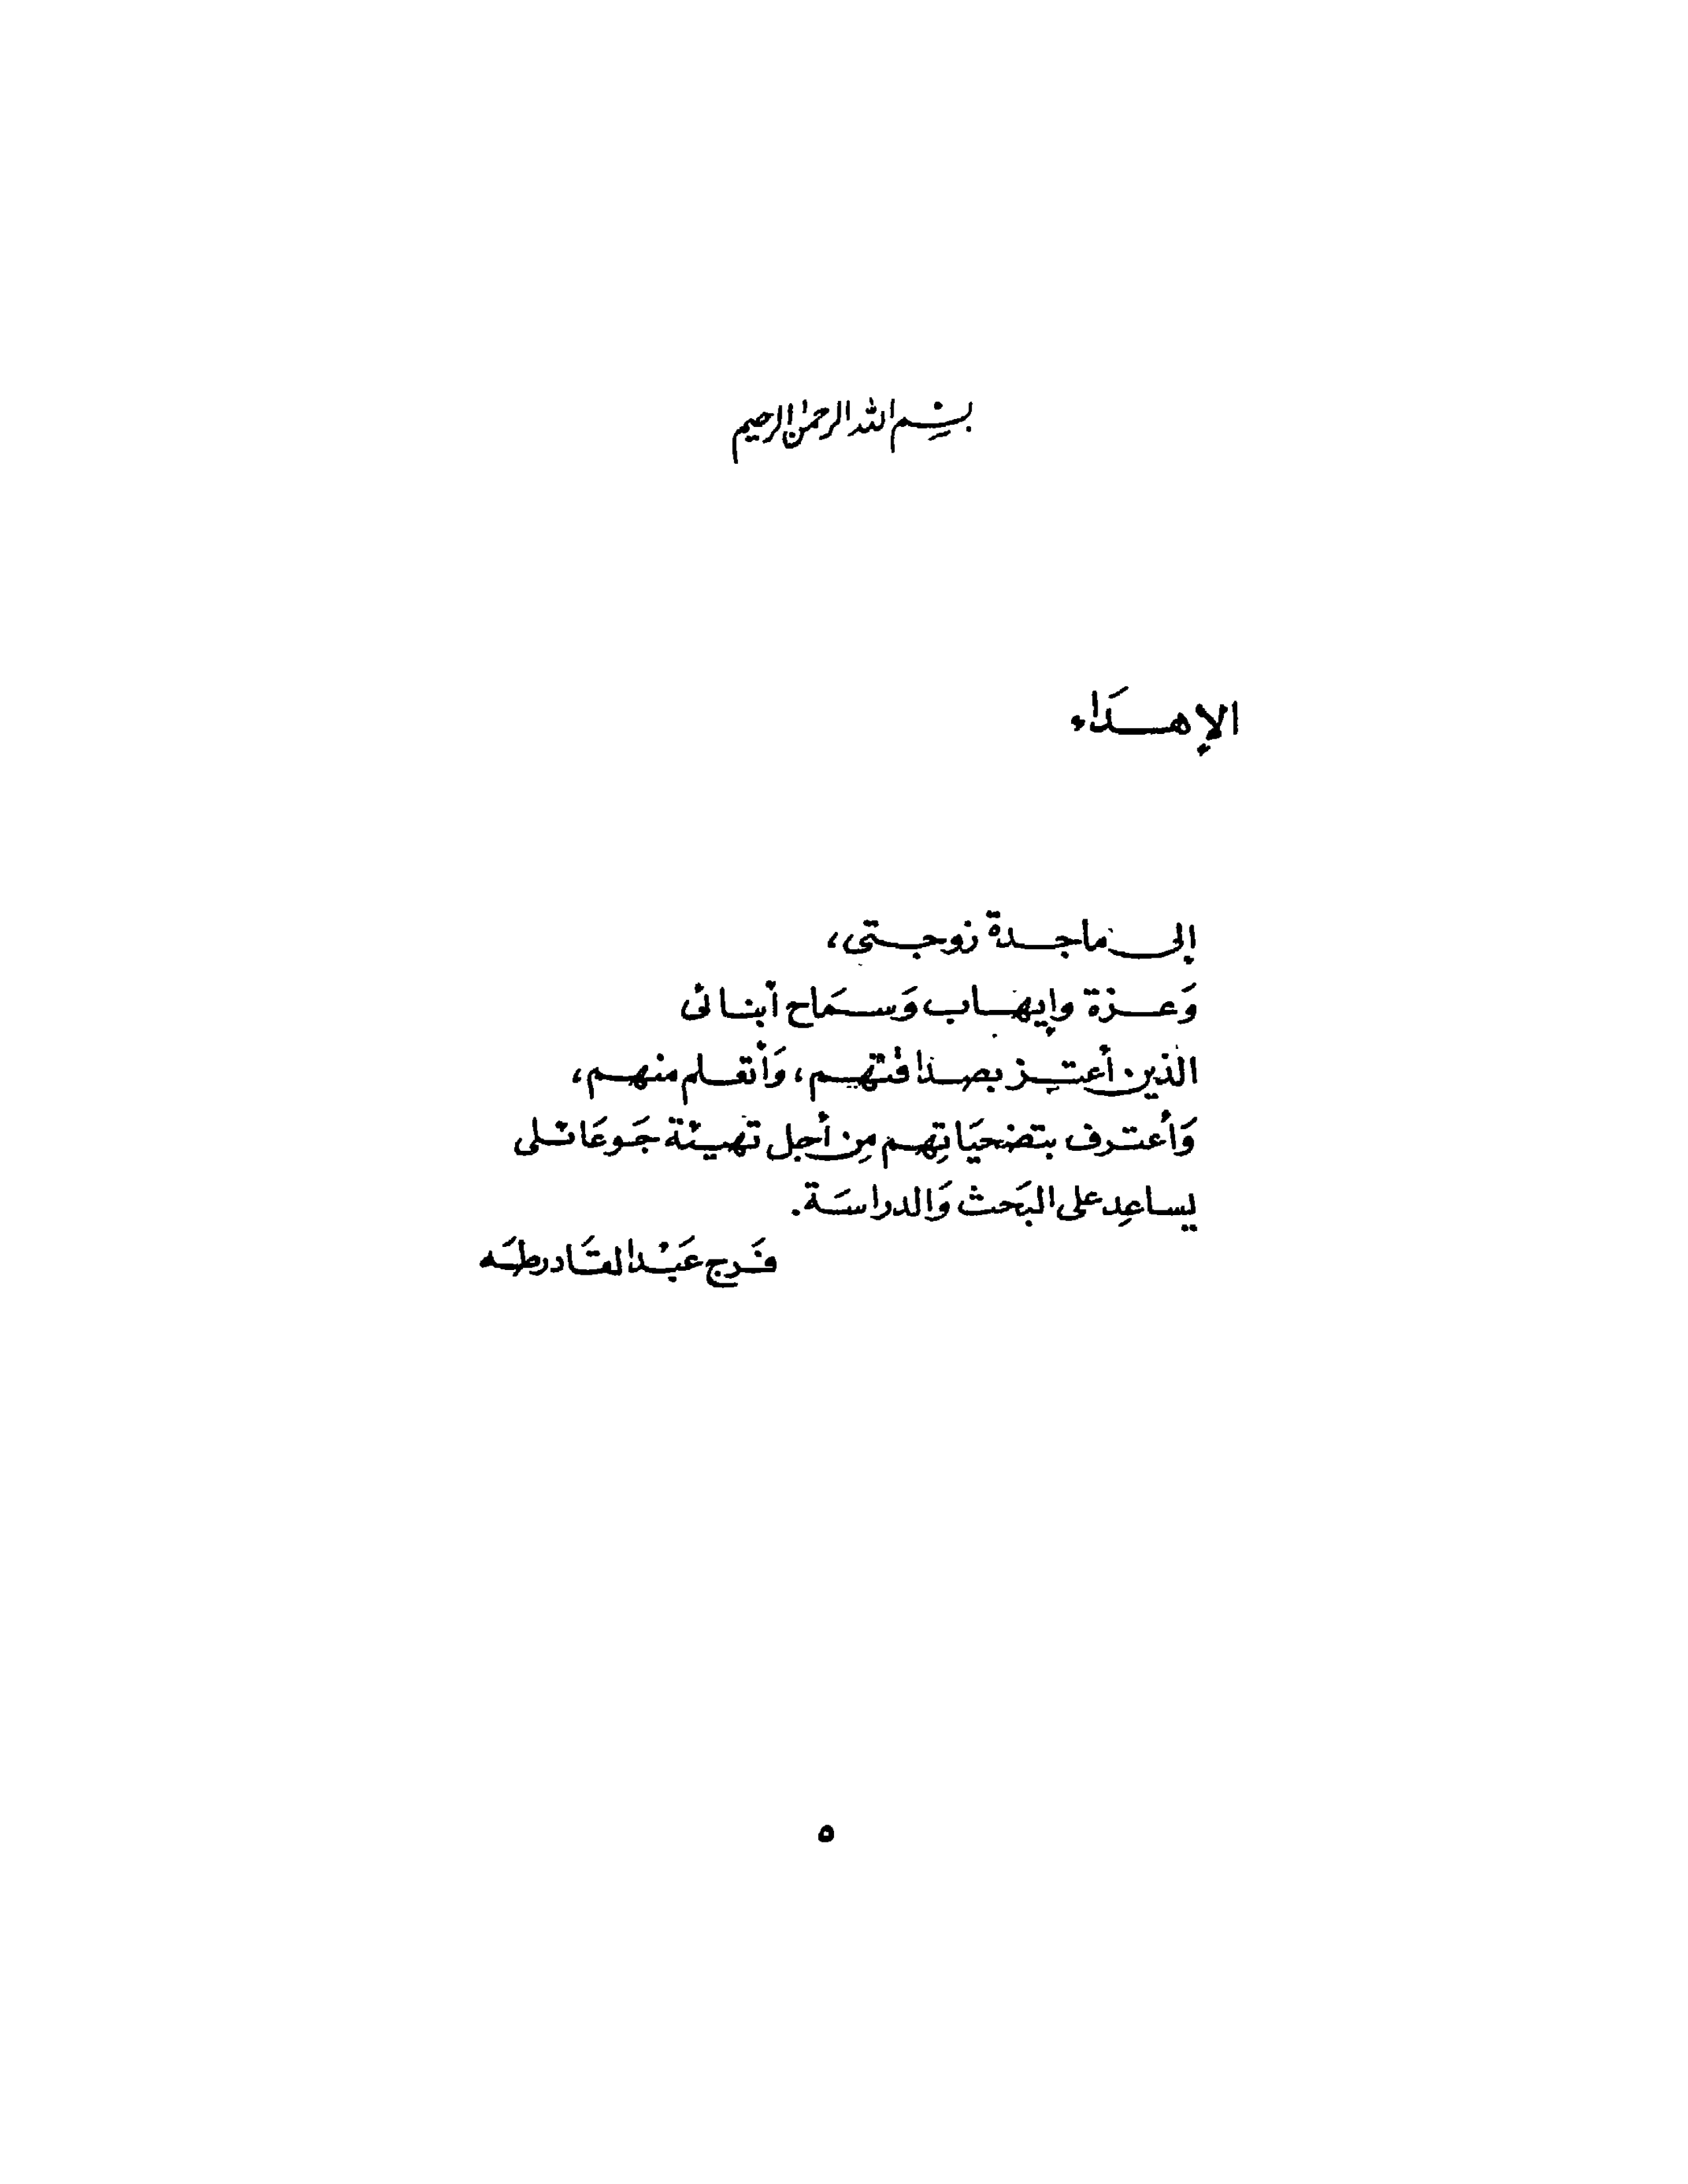 بسم الله الرحمن الرحيم
الإهداء
إلى ماجدة زوجتى،
وَعزة وإيهاب وَسمَاح أبنائى
الذين أعتز بصداقتهم، وَأتعلم منهم،
وَأعترف بتضحيَاتِهم مِن أجل تهيئة جَو عَائلى
يساعِد على البَحث وَالدراسَة.
فَرج عَبْد القَادر طَه
٥